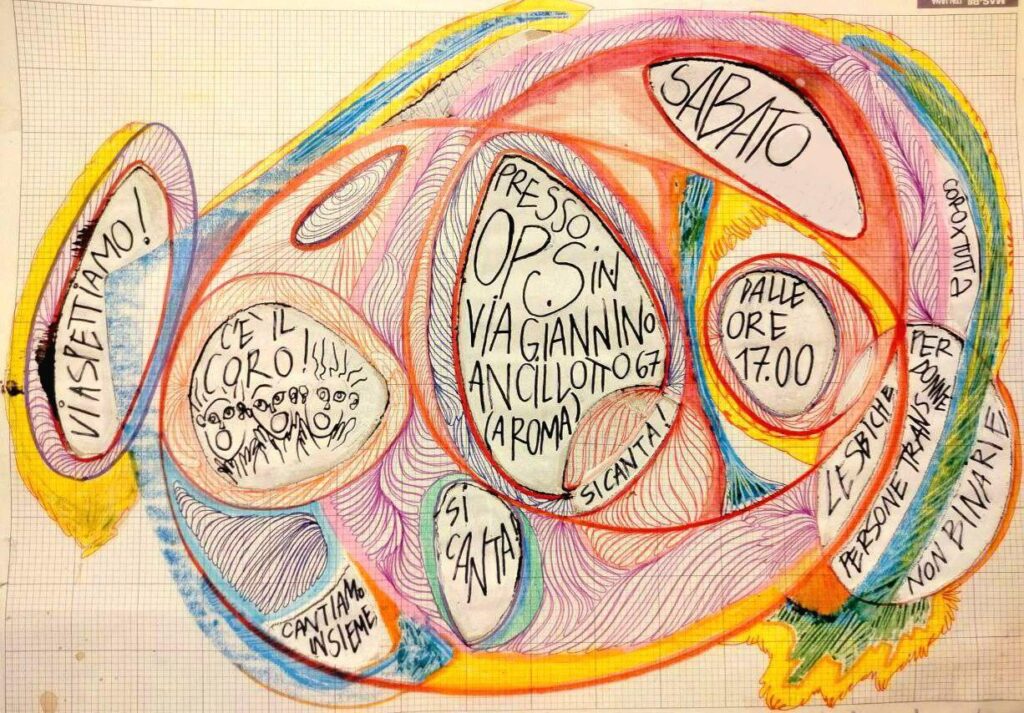 SABATO
VI ASPETTIAMO!
C'È IL
CORO!
PRESSO
OPS IN
VIA GIANNINO
ANCILLOTTO 67
(A ROMA)
SI CANTA!
DALLE
ORE
17.00
COROXTUTT3
LESBICHE
PER
DONNE
PERSONE TRANS E
NON BINARIE
SI
CANTA!
CANTIAMO
INSIEME